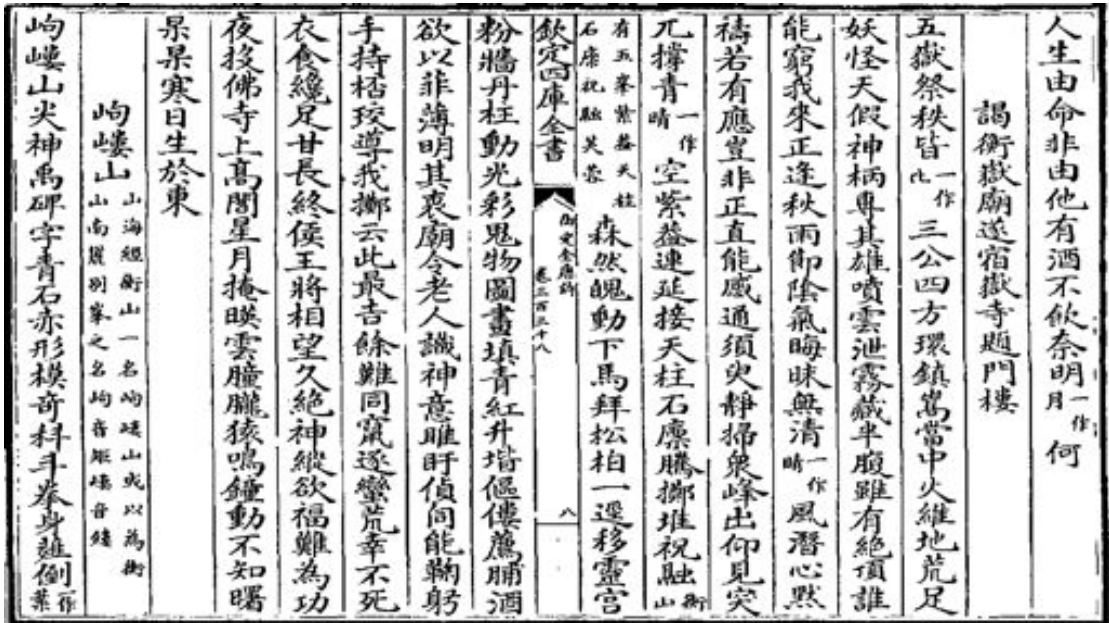 人生由命非由他有酒不飲奈明一作月何
謁衡嶽廟遂宿嶽寺題門樓
五嶽祭秩皆一作比三公四方環鎮嵩當中火維地荒足
妖怪天假神柄專其雄噴雲泄霧藏半腹雖有絶頂誰
能窮我來正逢秋雨節陰氣晦昧無清一作晴風潛心默
禱若有應豈非正直能感通須臾靜掃衆峰出仰見突
兀撐青一作晴空紫葢連延接天柱石廩騰擲堆祝融衡山
有五峯紫葢天柱石廩祝融芙蓉森然魄動下馬拜松柏一逕移靈宮
欽定四庫全書
御定全唐詩
卷三百三十八
八
粉牆丹柱動光彩鬼物圖畫填青紅升堦傴僂薦脯酒
欲以菲薄明其衷廟令老人識神意睢盱偵伺能鞠躬
手持桮珓導我擲云此最吉餘難同竄逐蠻荒幸不死
衣食纔足甘長終侯王將相望久絶神縱欲福難為功
夜投佛寺上高閣星月掩暎雲朣朧猿鳴鐘動不知曙
杲杲寒日生於東
岣嶁山山海經衡山一名岣嶁山或以為衡山南麓别峯之名岣音矩嶁音縷
岣嶁山尖神禹碑字青石赤形模奇科斗拳身薤倒一作葉